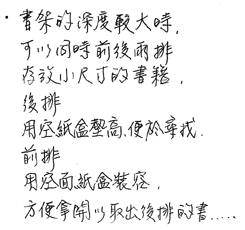 ・書架的深度較大時，
可以同時前後兩排
存放小尺寸的書籍，
後排
用空紙盒墊高，便於尋找．
前排
用空面紙盒裝容，
方便拿開以取出後排的書.....